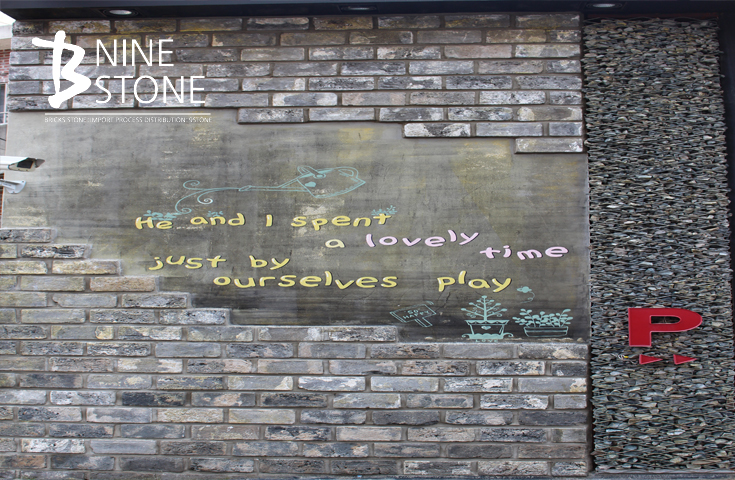 NINE
STONE
BRICKS STONE IMPORT PROCESS DISTRIBUTION 9STONE
He and I spent
a lovely time
just by
ourselves play
P